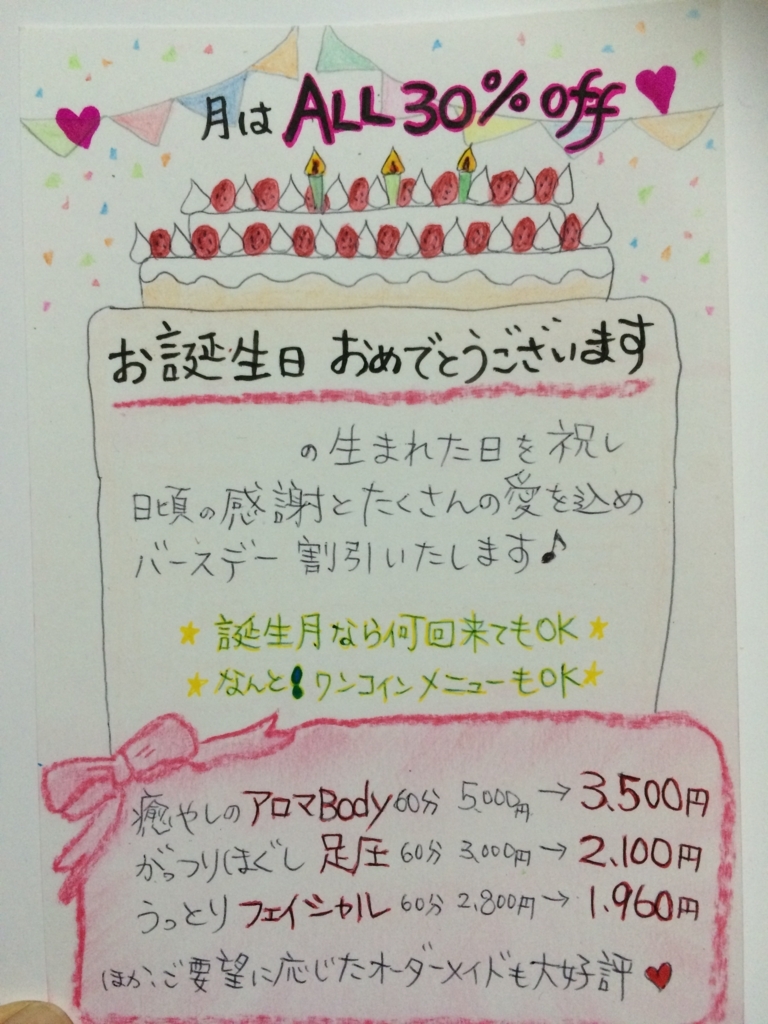 月は ALL 30% off
お誕生日 おめでとうございます
の生まれた日を祝し
日頃の感謝とたくさんの愛を込め
バースデー 割引いたします♪
★ 誕生月なら何回来てもOK ★
★ なんと! ワンコインメニューもOK ★
癒やしの アロマBody 60分 5,000円 → 3,500円
がっつりほぐし 足圧 60分 3,000円 → 2,100円
うっとり フェイシャル 60分 2,800円 → 1,960円
ほか、ご要望に応じたオーダーメイドも大好評 ♥